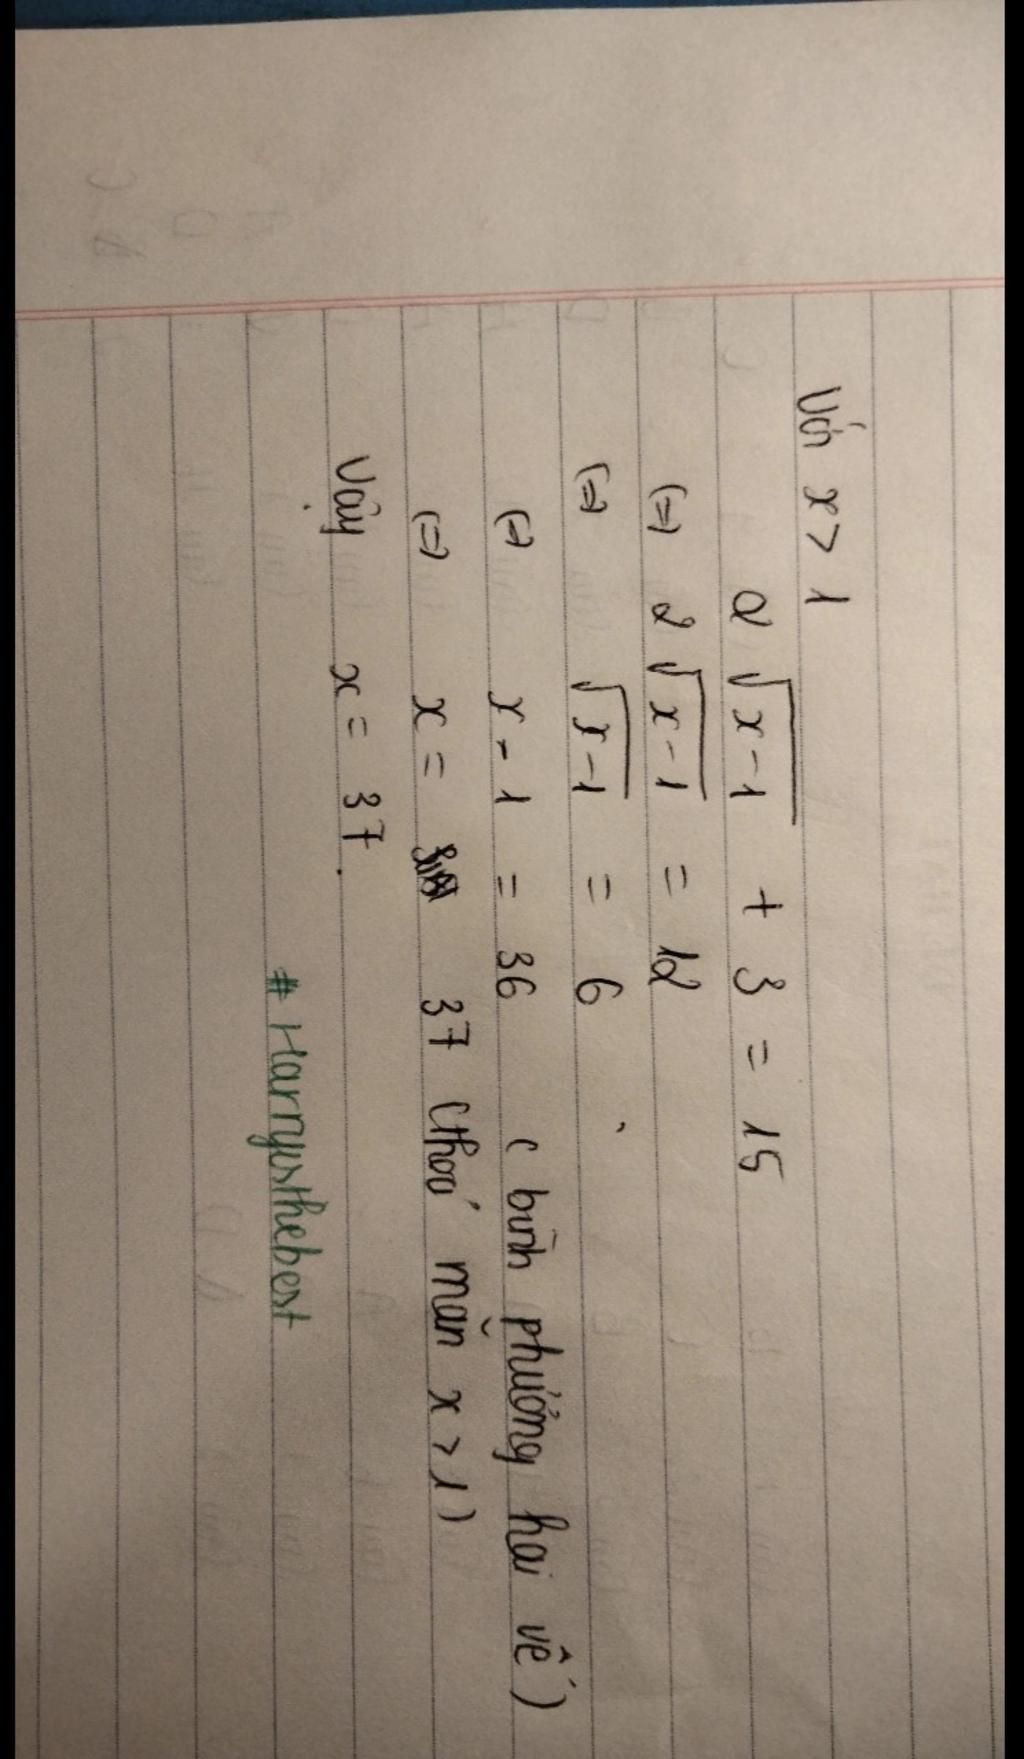 Với x > 1
2√x-1 + 3 = 15
(=) 2√x-1 = 12
(=) √x-1 = 6
(=) x-1 = 36 (bình phương hai vế)
(=) x = 37 (thoả mãn x > 1)
Vậy x = 37.
# Harryisthebest